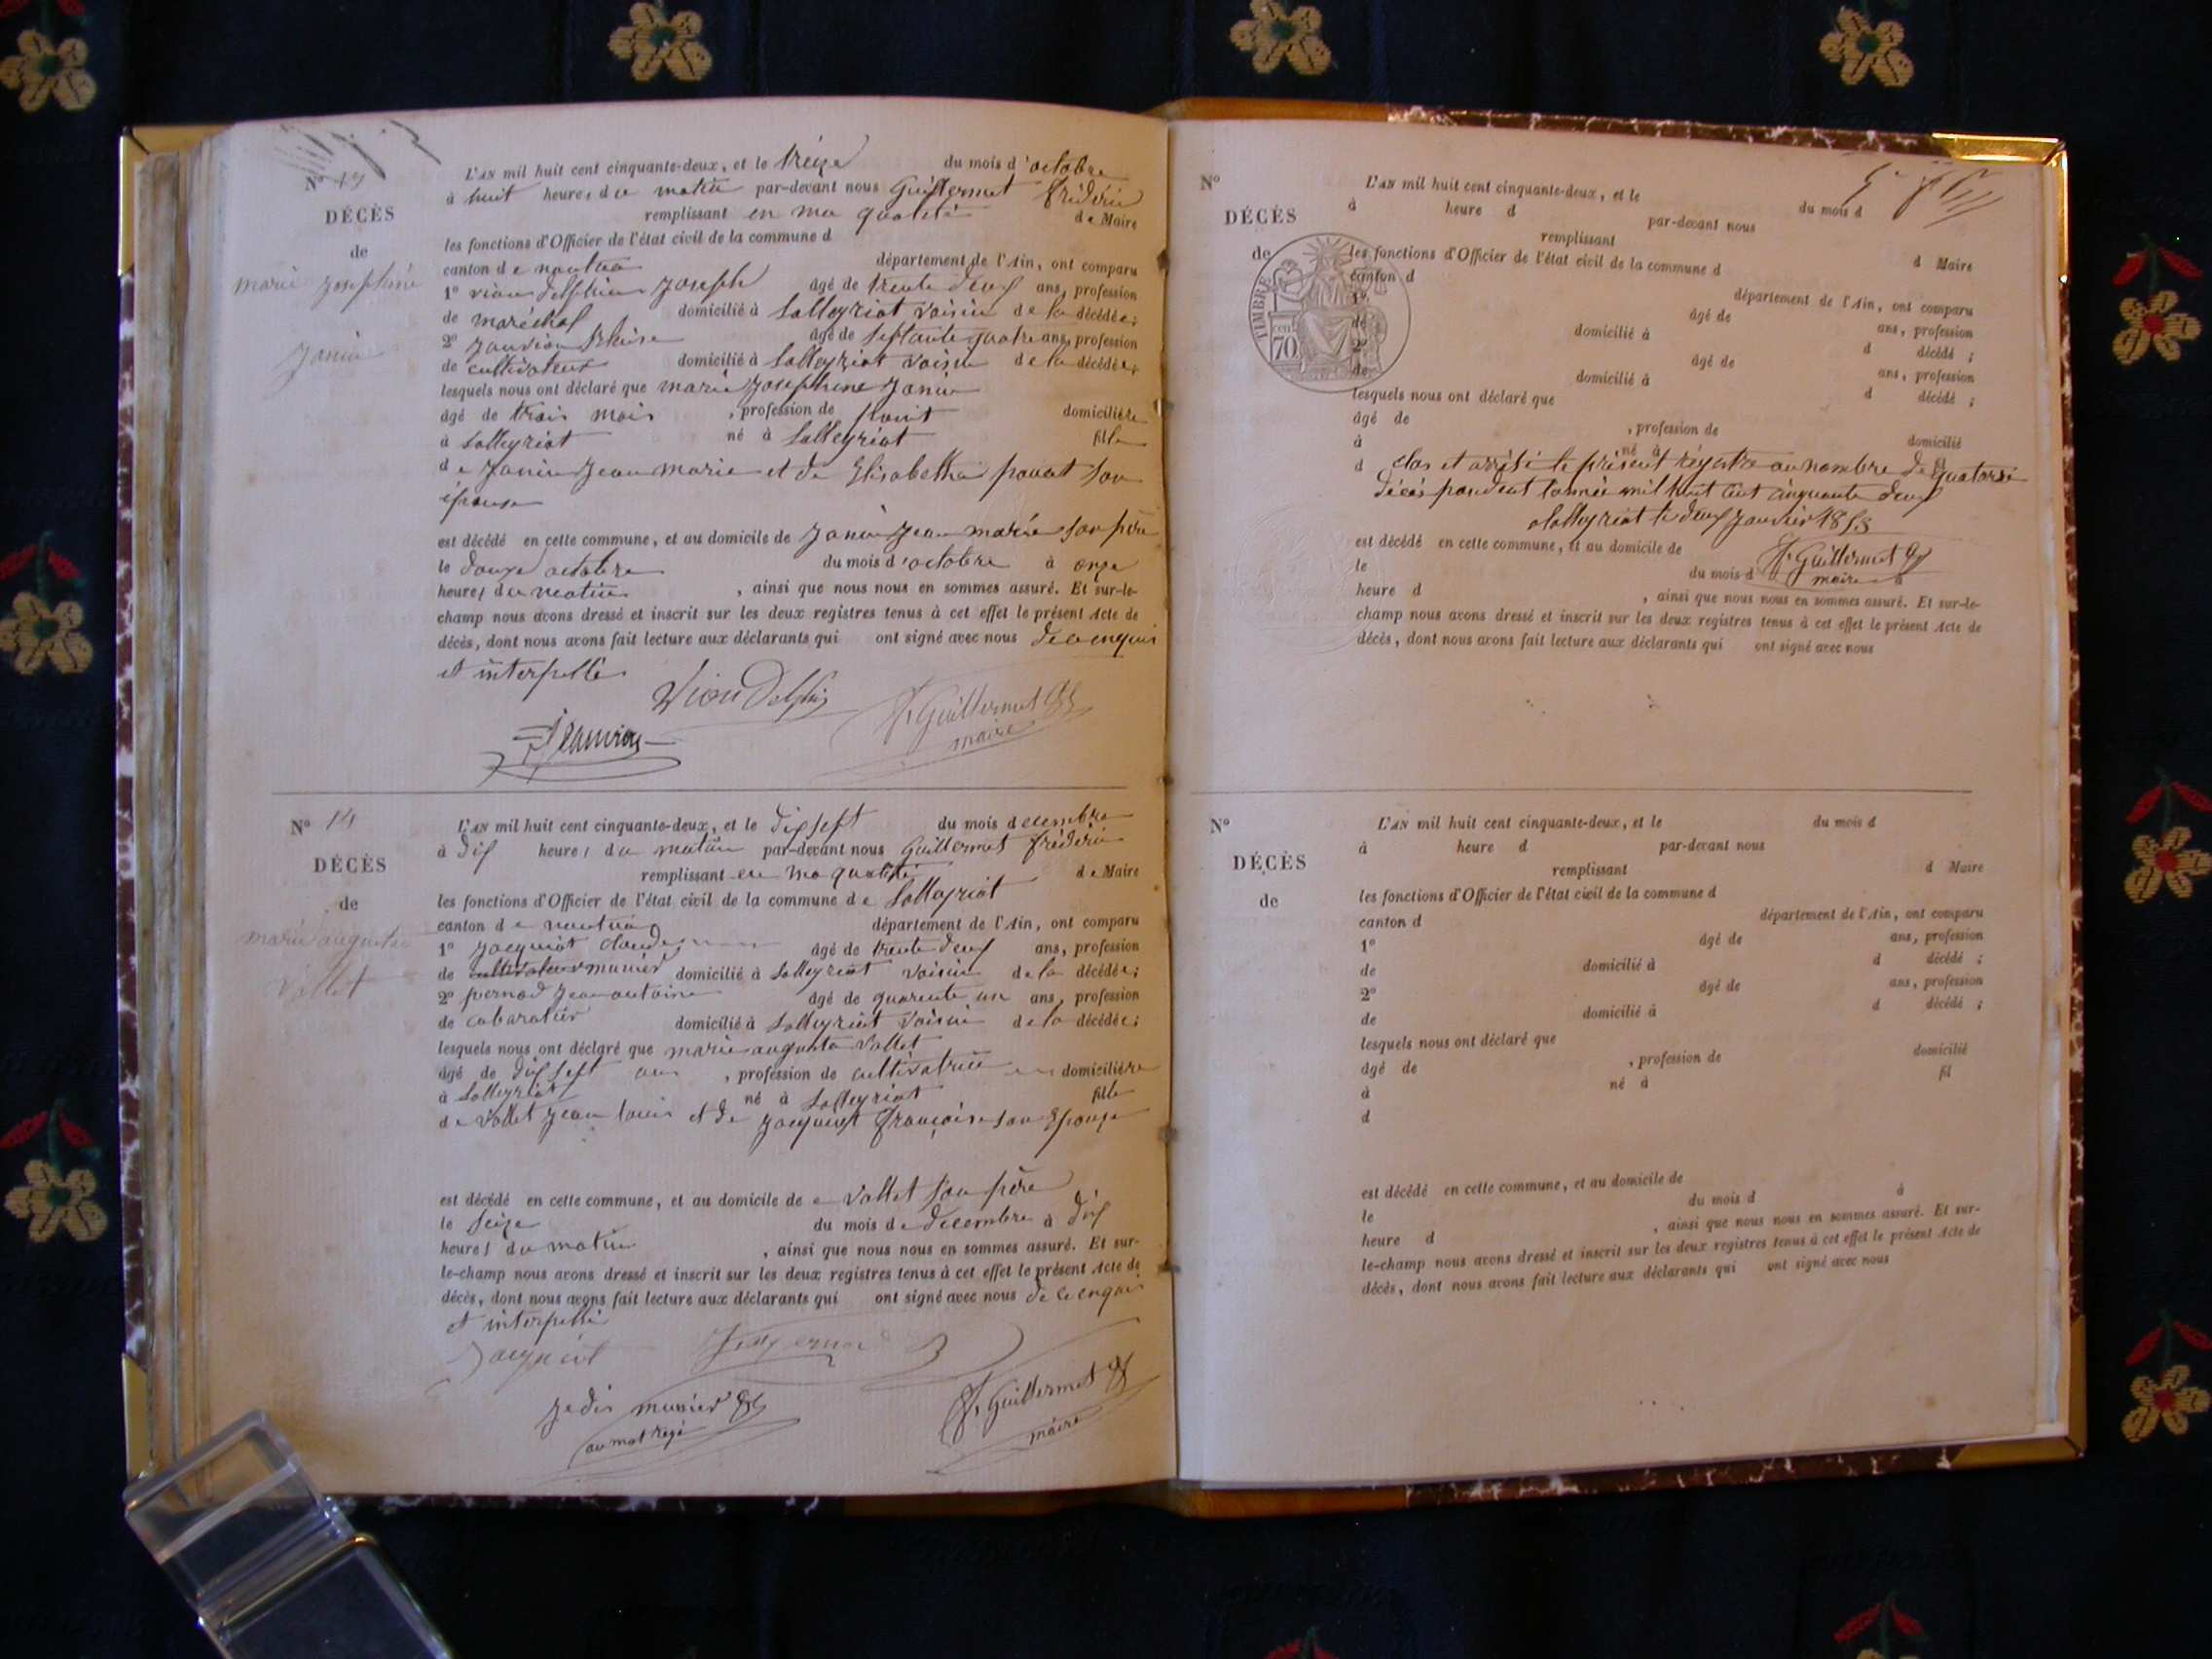 DÉCÈS
de
marie josephine
janin
L'AN mil huit cent cinquante-deux, et le treize du mois d'octobre
à huit heures du matin par-devant nous Guillermet frédéric
remplissant en ma qualité de Maire
les fonctions d'Officier de l'état civil de la commune d
canton de nantua département de l'Ain, ont comparu
1° vion delphin Joseph âgé de trente deux ans, profession
de maréchal domicilié à Solleyriat voisin de la décédée;
2° âgé de septante quatre ans, profession
de cultivateur domicilié à Solleyriat voisin de la décédée;
lesquels nous ont déclaré que marie Josephine Janin
âgé de trois mois, profession de point domiciliée
à Solleyriat né à Solleyriat fille
de Janin Jean marie et de Elisabeth pavat son
épouse
est décédé en cette commune, et au domicile de Janin Jean marie son père
le douze octobre du mois d'octobre à onze
heures du matin, ainsi que nous nous en sommes assuré. Et sur-le-
champ nous avons dressé et inscrit sur les deux registres tenus à cet effet le présent Acte de
décès, dont nous avons fait lecture aux déclarants qui ont signé avec nous de ce enquis
et interpellé
Vion Delphin
F. Guillermet
maire
N° 14
DÉCÈS
de
marie augusta
Vallet
L'AN mil huit cent cinquante-deux, et le dix sept du mois decembre
à dix heures du matin par-devant nous Guillermet frédéric
remplissant en ma qualité de Maire
les fonctions d'Officier de l'état civil de la commune de Solleyriat
canton de nantua département de l'Ain, ont comparu
1° jacquiot claude âgé de trente deux ans, profession
de cultivateur munier domicilié à Solleyriat voisin de la décédée;
2° pernod jean antoine âgé de quarente un ans, profession
de cabaratier domicilié à Solleyriat voisin de la décédée;
lesquels nous ont déclaré que marie augusta Vallet
âgé de dix sept ans, profession de cultivatrice domiciliée
à Solleyriat né à Solleyriat fille
de Vallet jean louis et de jacquiot françoise son Epouse
est décédé en cette commune, et au domicile de Vallet son père
le seize du mois de decembre à dix
heures du matin, ainsi que nous nous en sommes assuré. Et sur-
le-champ nous avons dressé et inscrit sur les deux registres tenus à cet effet le présent Acte de
décès, dont nous avons fait lecture aux déclarants qui ont signé avec nous de ce enquis
et interpellé
Jacquiot
je dis munier
au mot rayé
F. Guillermet
maire
N°
DÉCÈS
de
TIMBRE
70 cen
L'AN mil huit cent cinquante-deux, et le du mois d
à heure d par-devant nous
remplissant d Maire
les fonctions d'Officier de l'état civil de la commune d
canton d département de l'Ain, ont comparu
1° âgé de ans, profession
de domicilié à d décédé;
2° âgé de ans, profession
de domicilié à d décédé;
lesquels nous ont déclaré que
âgé de, profession de domicilié
à né à fil
d
clos et arrêté le présent régistre au nombre de quatorse
décés pendent l'année mil huit cent cinquante deux
à Solleyriat le deux janvier 1853
F. Guillermet
maire
est décédé en cette commune, et au domicile de
le du mois d à
heure d, ainsi que nous nous en sommes assuré. Et sur-le-
champ nous avons dressé et inscrit sur les deux registres tenus à cet effet le présent Acte de
décès, dont nous avons fait lecture aux déclarants qui ont signé avec nous
N°
DÉCÈS
de
L'AN mil huit cent cinquante-deux, et le du mois d
à heure d par-devant nous
remplissant d Maire
les fonctions d'Officier de l'état civil de la commune d
canton d département de l'Ain, ont comparu
1° âgé de ans, profession
de domicilié à d décédé;
2° âgé de ans, profession
de domicilié à d décédé;
lesquels nous ont déclaré que
âgé de, profession de domicilié
à né à fil
d
est décédé en cette commune, et au domicile de
le du mois d à
heure d, ainsi que nous nous en sommes assuré. Et sur-
le-champ nous avons dressé et inscrit sur les deux registres tenus à cet effet le présent Acte de
décès, dont nous avons fait lecture aux déclarants qui ont signé avec nous